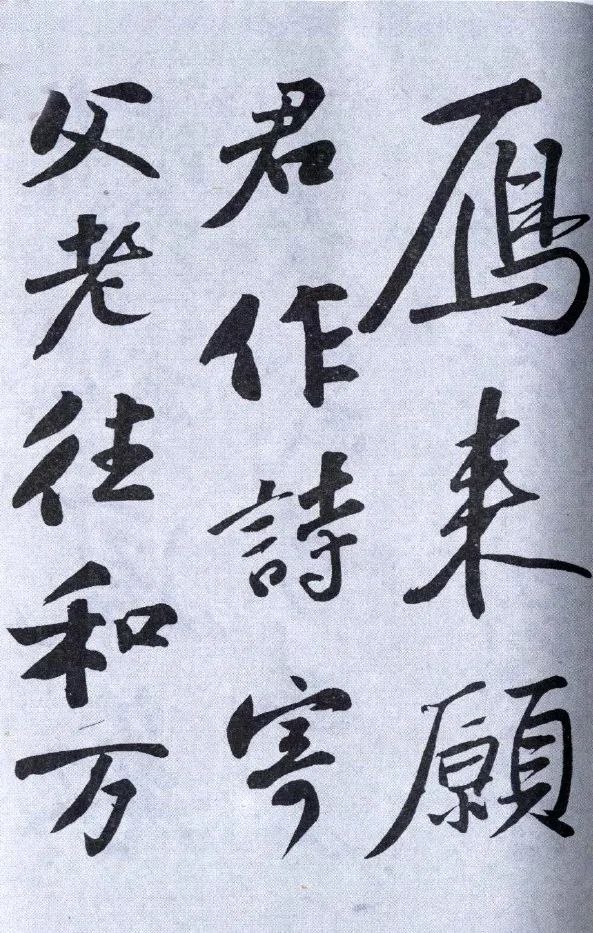 鴈来願
君作詩寄
父老往和万